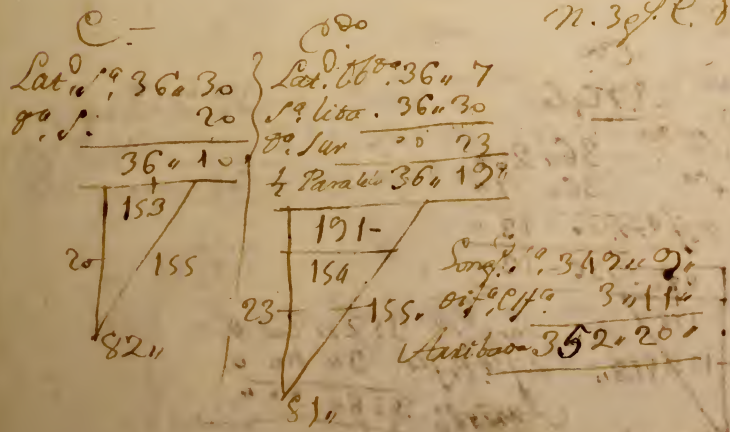 C.
Lat. Sa. 36,, 30
ga. S. 20
36,, 10
153
20 155
82,,
Cdo
Lat. Obda. 36,, 7
Sa. 36,, 30
da. Sur 00 23
1/2 Paralelo 36,, 19
191
154
23 155
81,,
Longd. Sa. 349,, 9,,
difa. 3,, 11,,
352,, 20,,